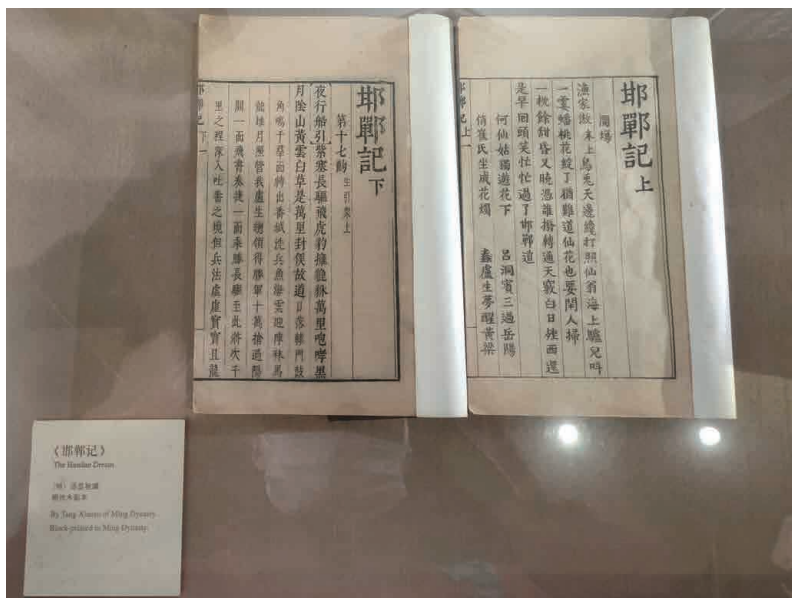 邯鄲記 上
開場
漁家傲 末上 烏兎天邊纔打照仙翁海上驢兒呌
一霎蟠桃花綻了猶難道仙花也要閒人掃
一枕餘甜昏又曉憑誰撥轉通天竅白日矬西還
是早回頭笑忙忙過了邯鄲道
何仙姑謫遊花下 呂洞賓三過岳陽
俏崔氏坐成花燭 蠢盧生夢醒黃粱
邯鄲記 上 一
邯鄲記 下
第十七齣 生引衆上
夜行船引 紫塞長驅飛虎豹擁貔貅萬里咆哮黑
月陰山黃雲白草是萬里封侯故道 日落轅門鼓
角鳴千羣面縛出番城洗兵魚海雲迎陣秣馬
龍堆月照營我盧生總領得勝軍十萬搶過陽
關一面飛書奏捷一面乘勝長驅至此將次千
里之程深入吐番之境但兵法虛虛實實且龍
邯鄲記 下 一
《邯郸记》
The Handan Dream
（明）汤显祖撰
明代木刻本
By Tang Xianzu of Ming Dynasty.
Block-printed in Ming Dynasty.